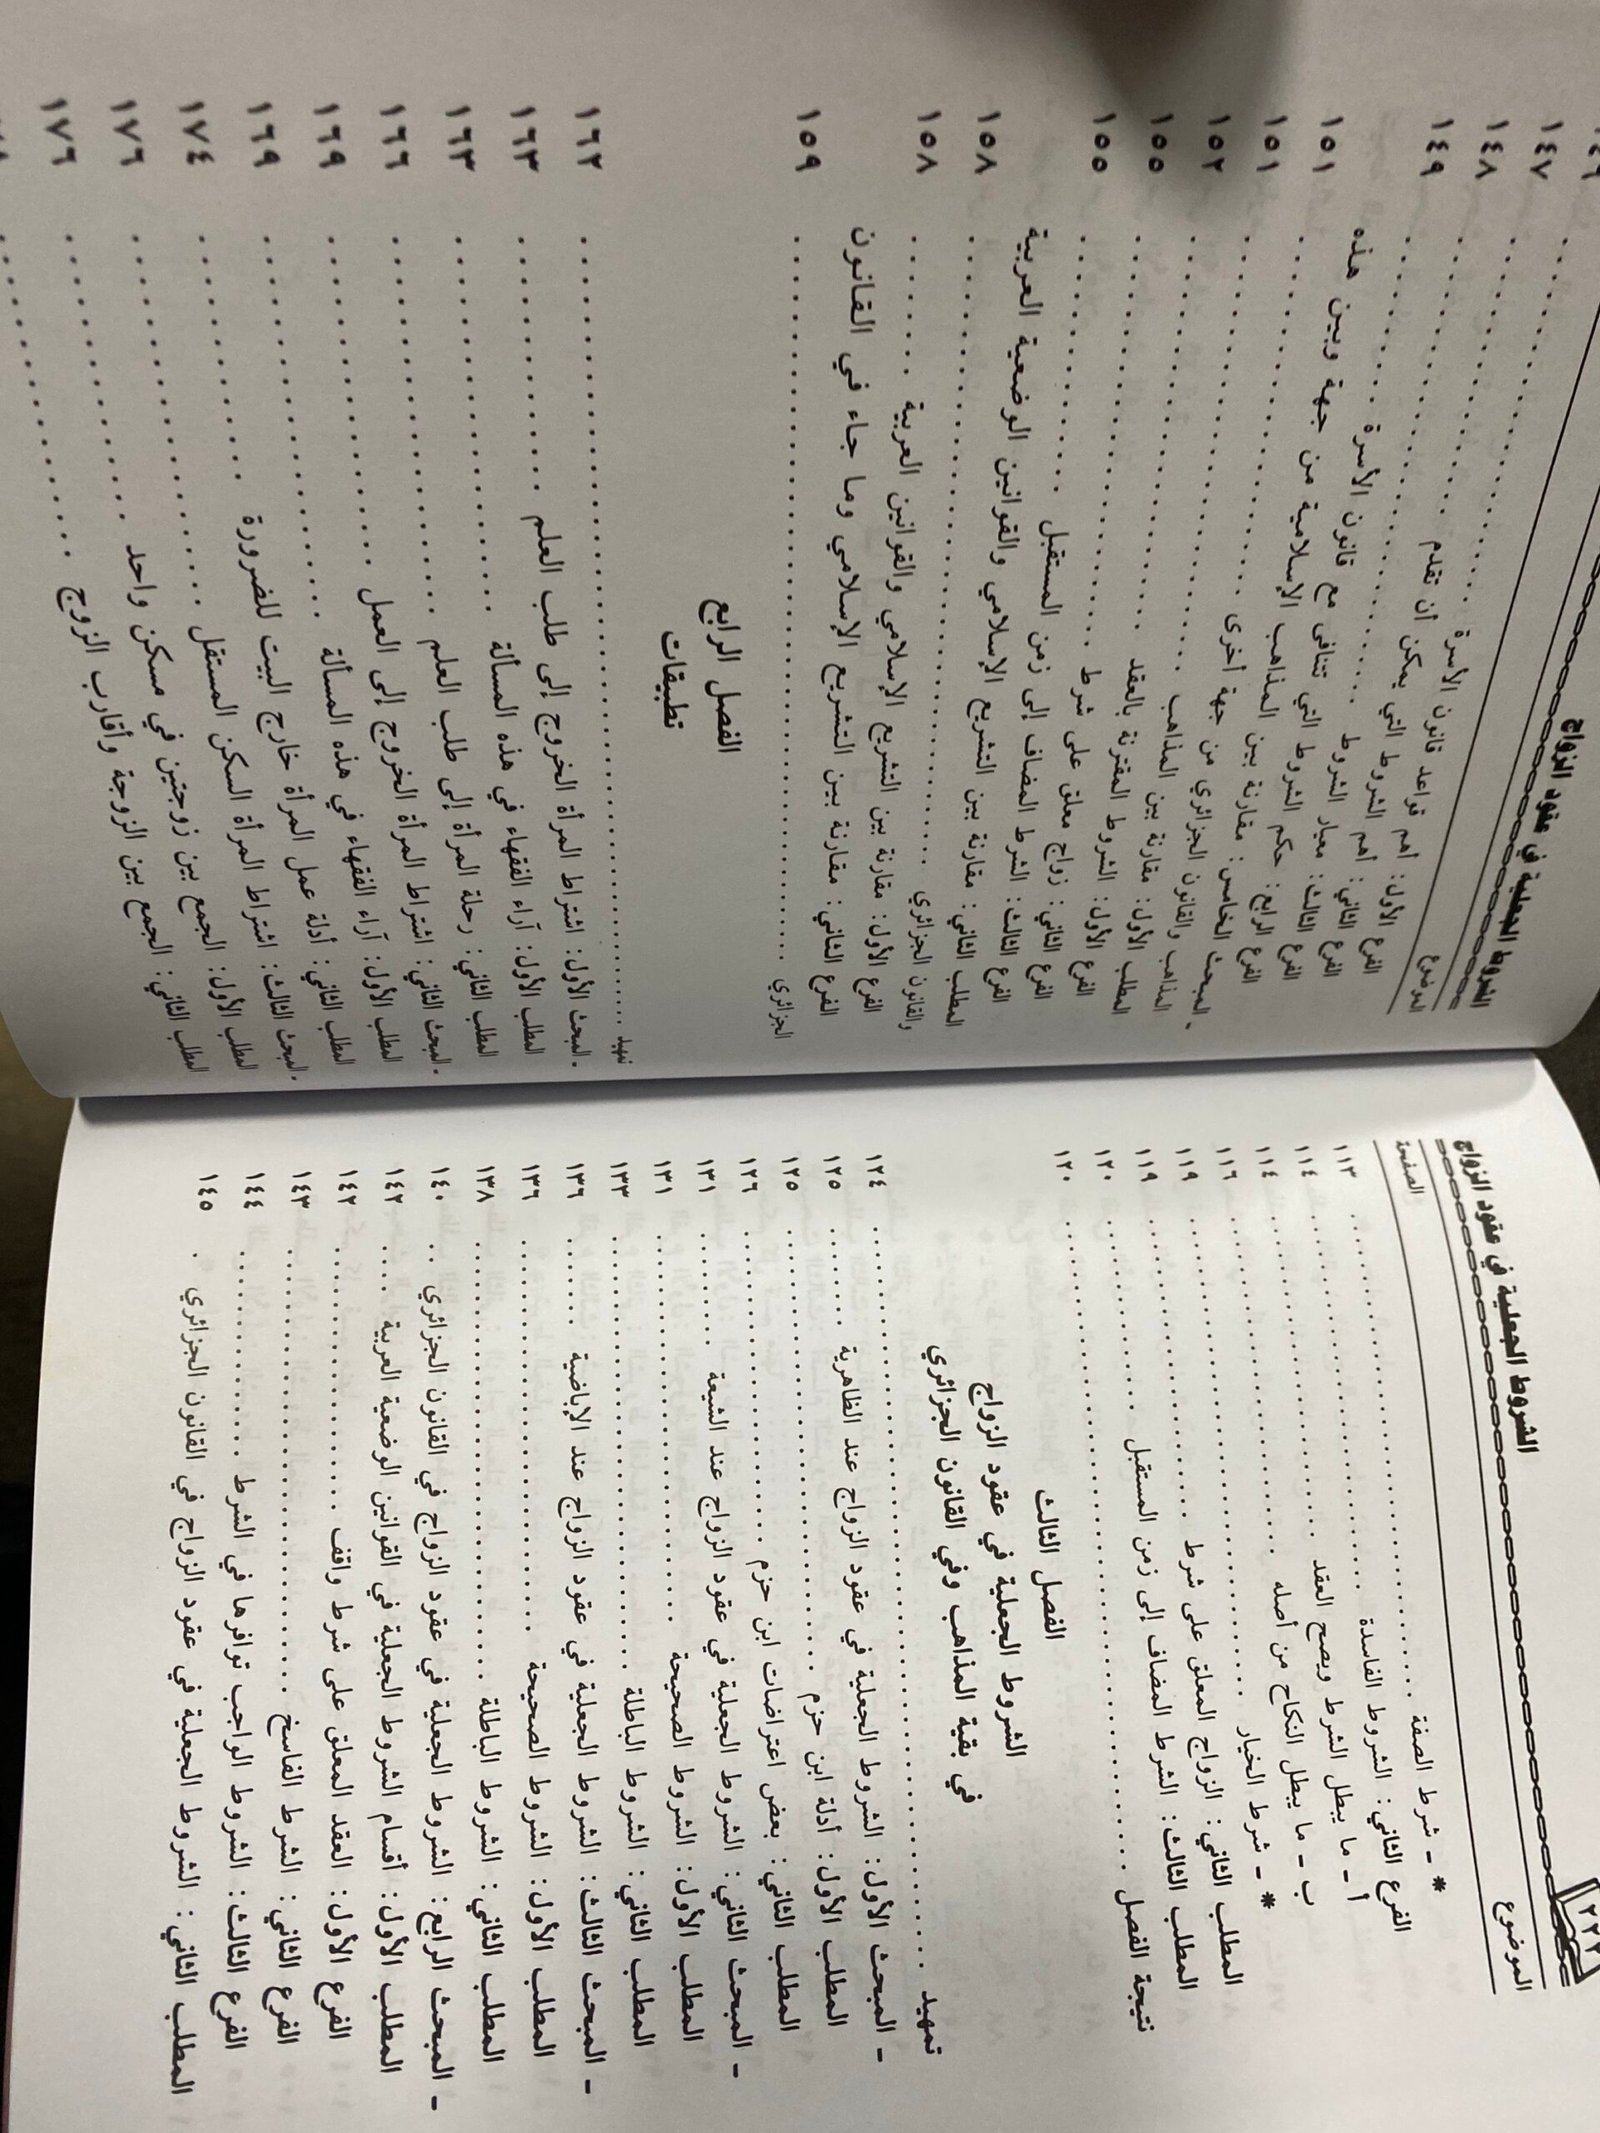 ٢٢٢
الشروط الجعلية في عقود الزواج
الموضوع الصفحة
* ـ شرط الصفة ١١٣
الفرع الثاني: الشروط الفاسدة ١١٤
أ ـ ما يبطل الشرط ويصح العقد ١١٤
ب ـ ما يبطل النكاح من أصله ١١٦
* ـ شرط الخيار ١١٩
المطلب الثاني: الزواج المعلق على شرط ١١٩
المطلب الثالث: الشرط المضاف إلى زمن المستقبل ١٢٠
نتيجة الفصل ١٢٠
الفصل الثالث
الشروط الجعلية في عقود الزواج
في بقية المذاهب وفي القانون الجزائري
تمهيد ١٢٤
ـ المبحث الأول: الشروط الجعلية في عقود الزواج عند الظاهرية ١٢٥
المطلب الأول: أدلة ابن حزم ١٢٥
المطلب الثاني: بعض اعتراضات ابن حزم ١٢٦
ـ المبحث الثاني: الشروط الجعلية في عقود الزواج عند الشيعة ١٣١
المطلب الأول: الشروط الصحيحة ١٣١
المطلب الثاني: الشروط الباطلة ١٣٣
ـ المبحث الثالث: الشروط الجعلية في عقود الزواج عند الإباضية ١٣٦
المطلب الأول: الشروط الصحيحة ١٣٦
المطلب الثاني: الشروط الباطلة ١٣٨
ـ المبحث الرابع: الشروط الجعلية في عقود الزواج في القانون الجزائري ١٤٠
المطلب الأول: أقسام الشروط الجعلية في القوانين الوضعية العربية ١٤٢
الفرع الأول: العقد المعلق على شرط واقف ١٤٢
الفرع الثاني: الشرط الفاسخ ١٤٣
الفرع الثالث: الشروط الواجب توافرها في الشرط ١٤٤
المطلب الثاني: الشروط الجعلية في عقود الزواج في القانون الجزائري ١٤٥
الشروط الجعلية في عقود الزواج
الموضوع
١٤٦
الفرع الأول: أهم قواعد قانون الأسرة ١٤٧
الفرع الثاني: أهم الشروط التي يمكن أن تقدم ١٤٨
الفرع الثالث: معيار الشروط التي تتنافى مع قانون الأسرة ١٤٩
الفرع الرابع: حكم الشروط
الفرع الخامس: مقارنة بين المذاهب الإسلامية من جهة وبين هذه
١٥١
ـ المبحث الخامس: مقارنة بين المذاهب الإسلامية من جهة وبين هذه
المذاهب والقانون الجزائري من جهة أخرى ١٥١
المطلب الأول: مقارنة بين المذاهب ١٥٢
الفرع الأول: الشروط المقترنة بالعقد ١٥٥
الفرع الثاني: زواج معلق على شرط ١٥٥
الفرع الثالث: الشرط المضاف إلى زمن المستقبل
المطلب الثاني: مقارنة بين التشريع الإسلامي والقوانين الوضعية العربية
والقانون الجزائري ١٥٨
الفرع الأول: مقارنة بين التشريع الإسلامي والقوانين العربية ١٥٨
الفرع الثاني: مقارنة بين التشريع الإسلامي وما جاء في القانون
الجزائري ١٥٩
الفصل الرابع
تطبيقات
تمهيد ١٦٢
ـ المبحث الأول: اشتراط المرأة الخروج إلى طلب العلم ١٦٣
المطلب الأول: آراء الفقهاء في هذه المسألة ١٦٣
المطلب الثاني: رحلة المرأة إلى طلب العلم ١٦٦
ـ المبحث الثاني: اشتراط المرأة الخروج إلى العمل ١٦٩
المطلب الأول: آراء الفقهاء في هذه المسألة ١٦٩
المطلب الثاني: أدلة عمل المرأة خارج البيت للضرورة ١٧٤
ـ المبحث الثالث: اشتراط المرأة السكن المستقل ١٧٦
المطلب الأول: الجمع بين زوجتين في مسكن واحد ١٧٦
المطلب الثاني: الجمع بين الزوجة وأقارب الزوج